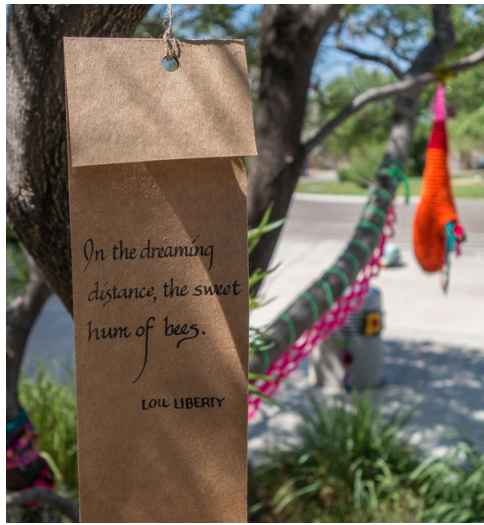 In the dreaming
distance, the sweet
hum of bees.
LOU LIBERTY